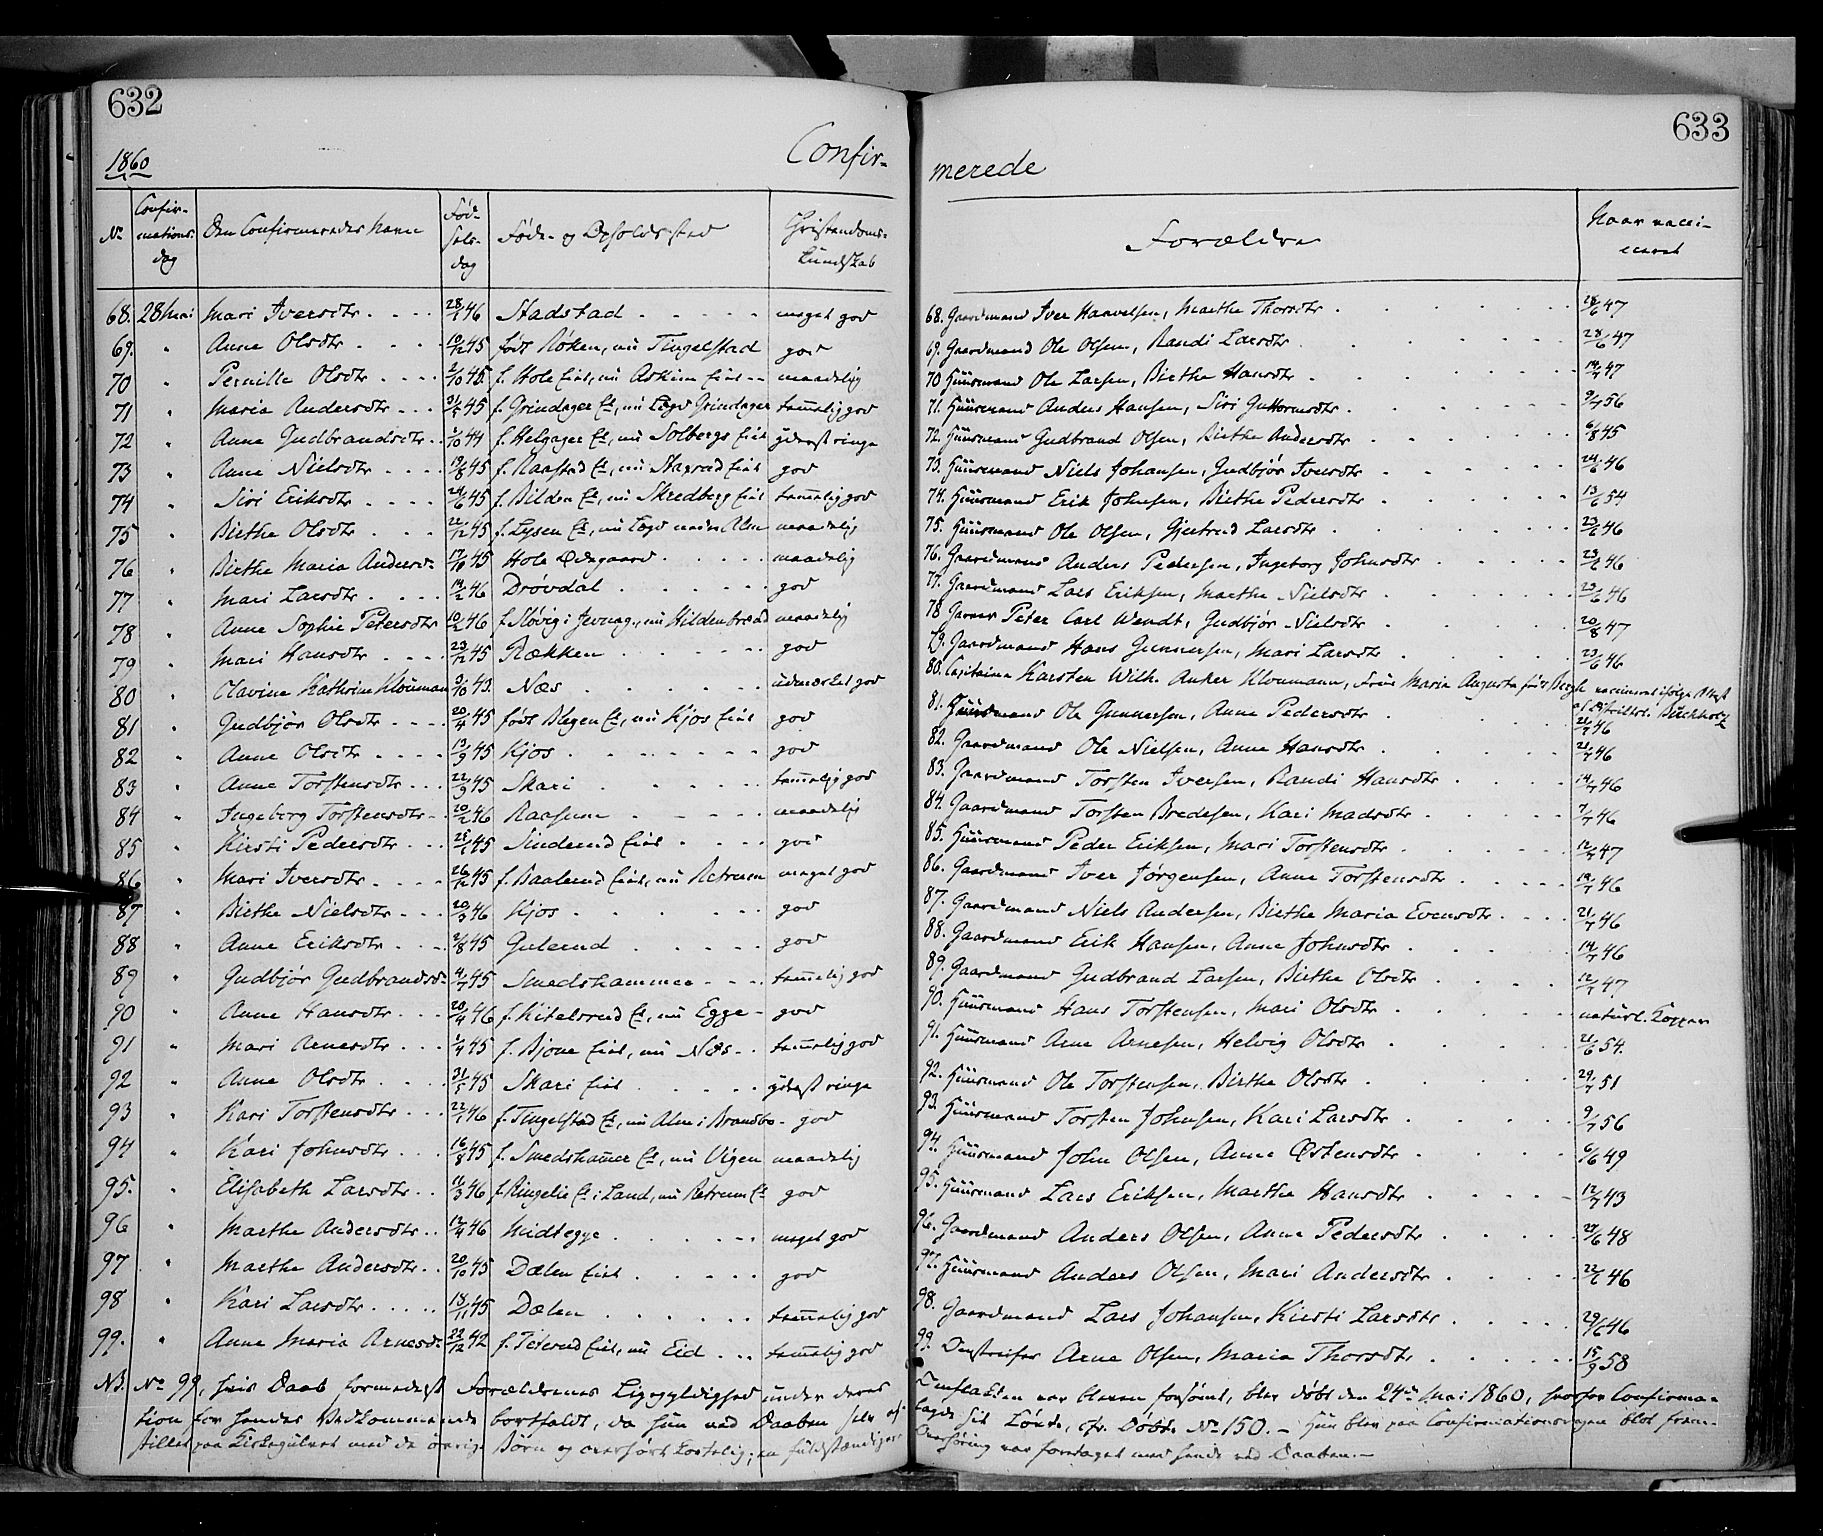 632
1860
Confir-
No
Confir-
mations-
dag
Den Confirmeredes Navn
Fød-
sels-
dag
Føde- og Opholdssted
Christendoms-
kundskab
68. 28 Mai Mari Iversdtr 46 Stadstad maget god
69. " Anne Olsdtr 10/12 45 født Røken, nu Tingelstad god
70 " Pernille Olsdtr 2/10 45 f. Hole Eiet, nu Askim Eiet maadelig
71 " Maria Andersdtr 31/5 45 f. Grindager E., nu Lægd Grindager temmelig god
72 " Anne Gudbrandsdtr 1/10 44 f. Helgager E., nu Solbergs Eiet yderst ringe
73 " Anne Nielsdtr 45 f. Raastad E., nu Stagrud Eiet god
74 " Siri Eriksdtr 24/6 45 f. Bilden E., nu Skredberg Eiet temmelig god
75 " Birthe Olsdtr 22/12 45 f. Lysen E., nu Lægd nedre Alm maadelig
76 " Birthe Maria Andersd. 17/10 45 Hole Ødegaard maadelig
77 " Mari Larsdtr 14/2 46 Drøvdal god
78 " Anne Sophie Petersdtr 10/2 46 f. Røvig i Jevnag., nu Hildenbræd maadelig
79 " Mari Hansdtr 23/12 45 Rækken god
80 " Olavine Kathrine Klouman 3/10 43. Næs udmærket god
81 " Gudbjør Olsdtr 20/4 45 født Blegen E., nu Kjos Eiet god
82 " Anne Olsdtr 13/9 45 Kjos god
83 " Anne Torstensdtr 22/9 45 Skari temmelig god
84 " Ingeborg Torstensdtr 20/2 46 Raasum maadelig
85 " Kirsti Pedersdtr 45 Sinderud Eiet god
86 " Mari Iversdtr 26/12 45 f. Baalerud Eiet, nu Retrum maget god
87 " Birthe Nielsdtr 20/3 46 Kjos god
88 " Anne Eriksdtr 2/8 45 Gulerud god
89 " Gudbjør Gudbrandsd. 4/7 45 Smedshammer temmelig god
90 " Anne Hansdtr 20/4 46 f. Kitelsrud E., nu Egge god
91 " Mari Arnesdtr 1/4 45 f. Bjone Eiet, nu Næs temmelig god
92 " Anne Olsdtr 31/5 45 Skari Eiet yderst ringe
93 " Kari Torstensdtr 22/1 46 f. Tingelstad E., nu Alm i Brandbo god
94 " Kari Johnsdtr 16/8 45 f. Smedshammer E., nu Vigen maadelig
95. " Elisabeth Larsdtr 11/3 46 f. Ringelie E. i Land, nu Retrum E. god
96 " Marthe Andersdtr 12/4 46 Midtegge maget god
97 " Marthe Andersdtr 20/10 45 Dælen Eiet god
98 " Kari Larsdtr 18/11 45 Dælen temmelig god
99. " Anne Maria Arnesd. 22/12 42 f. Teterud Eiet, nu Eid temmelig god
NB. No 99, hvis Daab formedelst Forældrenes Ligegyldighed under deres
tion for hendes Vedkommende bortfaldt, da hun ved Daaben selv af-
stilles paa Kirkegulvet med de øvrige Børn og overhørt kortelig; en fuldstændigere
633
merede
Forældre
Naar vacci-
neret
68. Gaardmand Iver Haavelsen, Marthe Thorsdtr 28/6 47
69. Gaardmand Ole Olsen, Randi Larsdtr 28/6 47
70 Huusmand Ole Larsen, Birthe Hansdtr 14/7 47
71. Huusmand Anders Hansen, Siri Guttormsdtr 9/7 56
72. Huusmand Gudbrand Olsen, Birthe Andersdtr 6/8 45
73. Huusmand Niels Johansen, Gudbjør Iversdtr 24/6 46
74. Huusmand Erik Johnsen, Birthe Pedersdtr 13/6 54
75. Huusmand Ole Olsen, Gjertrud Larsdtr 23/6 46
76. Gaardmand Anders Pedersen, Ingeborg Johnsdtr 23/6 46
77. Gaardmand Lars Eriksen, Marthe Nielsdtr 23/6 46
78 Garver Peter Carl Wendt, Gudbjør Nielsdtr 20/8 47
79. Gaardmand Hans Gunnersen, Mari Larsdtr 23/6 46
80. Capitaine Karsten Wilh. Anker Kloumann, Frue Maria Augusta født Bergh vaccineret ifølge Attest
af Distriktsl. Buchholz
81. Huusmand Ole Gunnersen, Anne Pedersdtr 21/7 46
82. Gaardmand Ole Nielsen, Anne Hansdtr 21/7 46
83. Gaardmand Torsten Iversen, Randi Hansdtr 14/7 46
84. Gaardmand Torsten Bredesen, Kari Madsdtr 7/7 46
85. Huusmand Peder Eriksen, Mari Torstensdtr 12/7 47
86. Gaardmand Iver Jørgensen, Anne Torstensdtr 14/7 46
87. Gaardmand Niels Andersen, Birthe Maria Evensdtr 21/7 46
88. Gaardmand Erik Hansen, Anne Johnsdtr 14/7 46
89. Gaardmand Gudbrand Larsen, Birthe Olsdtr 12/7 47
90. Huusmand Hans Torstensen, Mari Olsdtr naturl. Kopper
91. Huusmand Arne Arnesen, Helvig Olsdtr 21/6 54.
92. Huusmand Ole Torstensen, Birthe Olsdtr 29/7 51
93. Huusmand Torsten Johnsen, Kari Larsdtr 9/7 56
94. Huusmand John Olsen, Anne Østensdtr 6/6 49
95. Huusmand Lars Eriksen, Marthe Hansdtr 12/7 43
96. Gaardmand Anders Olsen, Anne Pedersdtr 29/6 48
97. Huusmand Anders Olsen, Mari Andersdtr 22/6 46
98. Gaardmand Lars Johansen, Kirsti Larsdtr 29/6 46
99. Arne Olsen, Maria Thorsdtr 15/9 58
var bleven forsømt, blev døbt den 24de Mai 1860, hvorfor Confirma-
lagde sit Løfte, cfr. Døbte No 150. – Hun blev paa Confirmationsdagen blot frem-
Overhøring var foretaget med hende ved Daaben. –